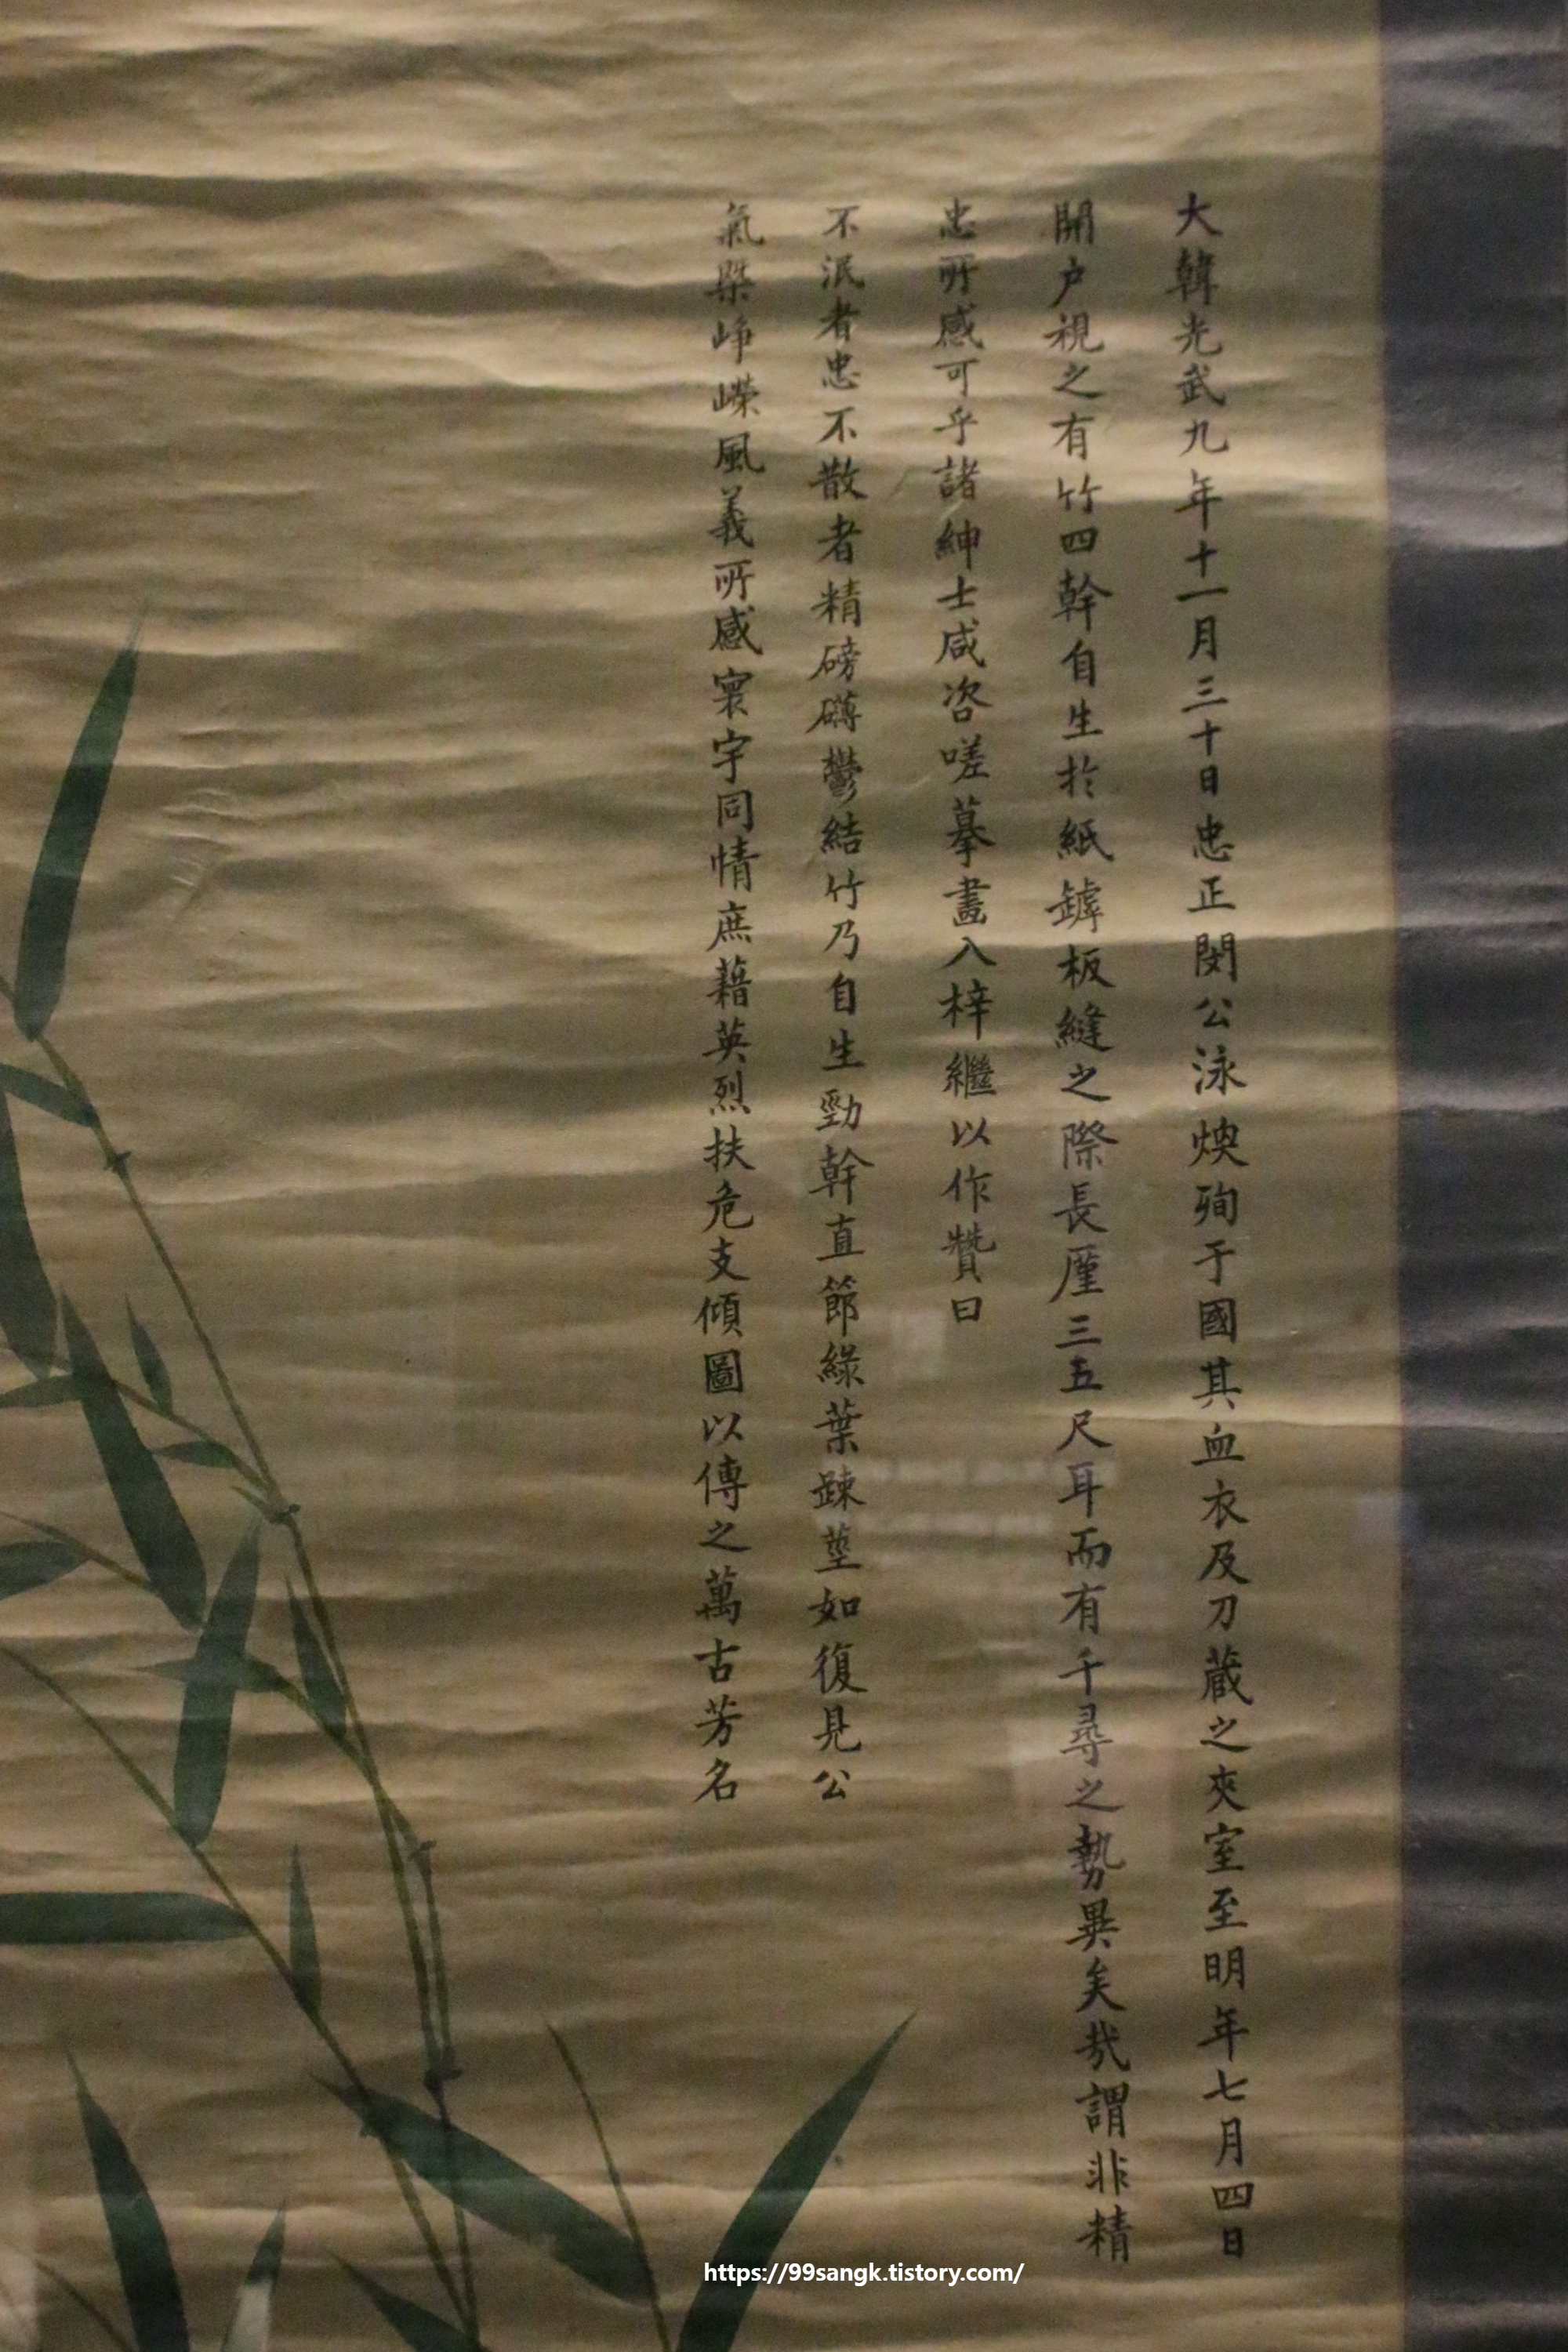 大韓光武九年十一月三十日忠正閔公泳煥殉于國其血衣及刀蔵之夾室至明年七月四日
開户視之有竹四幹自生於紙罅板縫之際長厪三五尺耳而有千尋之勢異矣哉謂非精
忠所感可乎諸紳士咸咨嗟摹畵入梓繼以作贊曰
不泯者忠不散者精磅礴鬱結竹乃自生勁幹直節綠葉踈莖如復見公
氣槩崢嶸風義所感寰宇同情庶藉英烈扶危支傾圖以傳之萬古芳名
https://99sangk.tistory.com/